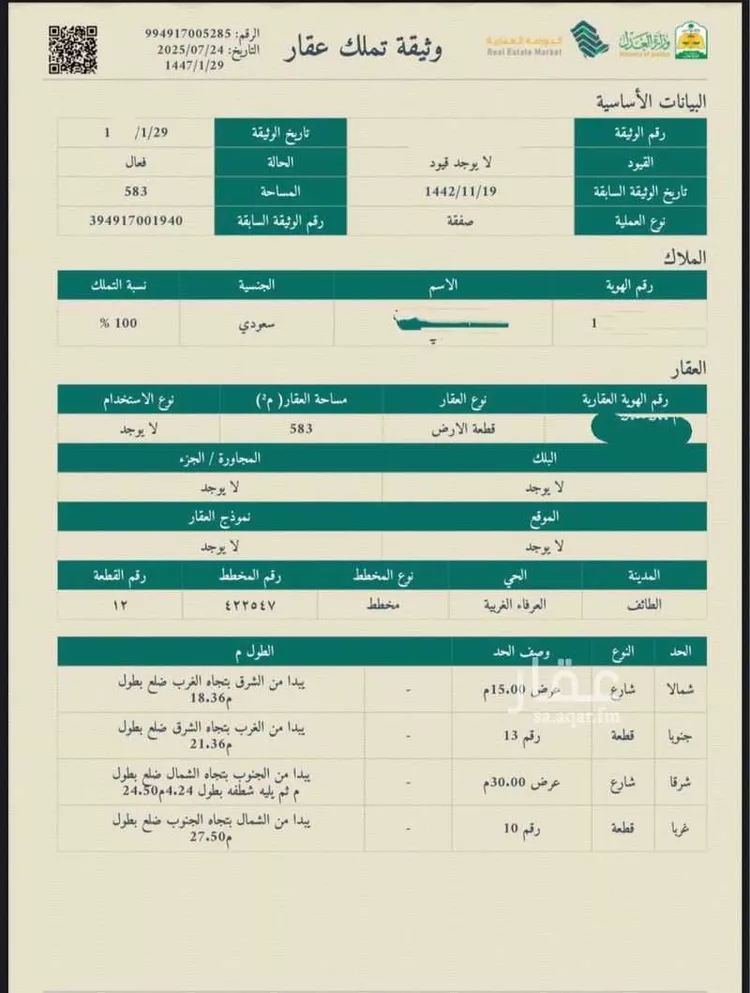 وزارة العدل
Ministry of Justice
البورصة العقارية
Real Estate Market
وثيقة تملك عقار
الرقم: 994917005285
التاريخ: 2025/07/24
1447/1/29
البيانات الأساسية
رقم الوثيقة تاريخ الوثيقة 1 /1/29
القيود لا يوجد قيود الحالة فعال
تاريخ الوثيقة السابقة 1442/11/19 المساحة 583
نوع العملية صفقة رقم الوثيقة السابقة 394917001940
الملاك
رقم الهوية الاسم الجنسية نسبة التملك
1 سعودي 100 %
العقار
رقم الهوية العقارية نوع العقار مساحة العقار( م²) نوع الاستخدام
قطعة الارض 583 لا يوجد
البلك المجاورة / الجزء
لا يوجد لا يوجد
الموقع نموذج العقار
لا يوجد لا يوجد
المدينة الحي نوع المخطط رقم المخطط رقم القطعة
الطائف العرفاء الغربية مخطط ٤٢٢٥٤٧ ١٢
الحد النوع وصف الحد الطول م
شمالا شارع عرض 15.00م - يبدا من الشرق بتجاه الغرب ضلع بطول
18.36م
جنوبا قطعة رقم 13 - يبدا من الغرب بتجاه الشرق ضلع بطول
21.36م
شرقا شارع عرض 30.00م - يبدا من الجنوب بتجاه الشمال ضلع بطول
24.50م ثم يليه شطفه بطول 4.24م
غربا قطعة رقم 10 - يبدا من الشمال بتجاه الجنوب ضلع بطول
27.50م
عقار
sa.aqar.fm